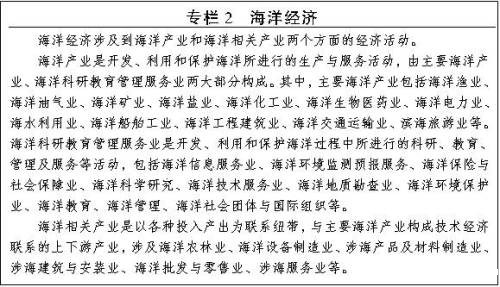 专栏2　海洋经济
海洋经济涉及到海洋产业和海洋相关产业两个方面的经济活动。
海洋产业是开发、利用和保护海洋所进行的生产与服务活动，由主要海洋产
业、海洋科研教育管理服务业两大部分构成。其中，主要海洋产业包括海洋渔业、
海洋油气业、海洋矿业、海洋盐业、海洋化工业、海洋生物医药业、海洋电力业、
海水利用业、海洋船舶工业、海洋工程建筑业、海洋交通运输业、滨海旅游业等。
海洋科研教育管理服务业是开发、利用和保护海洋过程中所进行的科研、教育、
管理及服务等活动，包括海洋信息服务业、海洋环境监测预报服务、海洋保险与
社会保障业、海洋科学研究、海洋技术服务业、海洋地质勘查业、海洋环境保护
业、海洋教育、海洋管理、海洋社会团体与国际组织等。
海洋相关产业是以各种投入产出为联系纽带，与主要海洋产业构成技术经济
联系的上下游产业，涉及海洋农林业、海洋设备制造业、涉海产品及材料制造业、
涉海建筑与安装业、海洋批发与零售业、涉海服务业等。